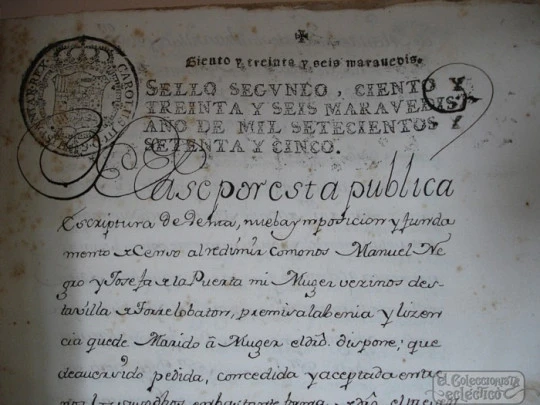 Siento y treinta y seis marauedis.
SELLO SEGVNDO, CIENTO Y
TREINTA Y SEIS MARAVEDIS
AÑO DE MIL SETECIENTOS Y
SETENTA Y CINCO.
CAROLUS III
Sease por esta publica
Escriptura de Venta, nueba ymposicion y funda
mento de Censo al redimir como nos Manuel Ne
gro y Josefa de la Puerta mi Muger vezinos desta
villa de Torrelobaton, premisa la benia y lizen
cia que de Marido â Muger el dro. dispone; que
de auer sido pedida, concedida y aceptada entre
nos los
el Coleccionista
ecléctico